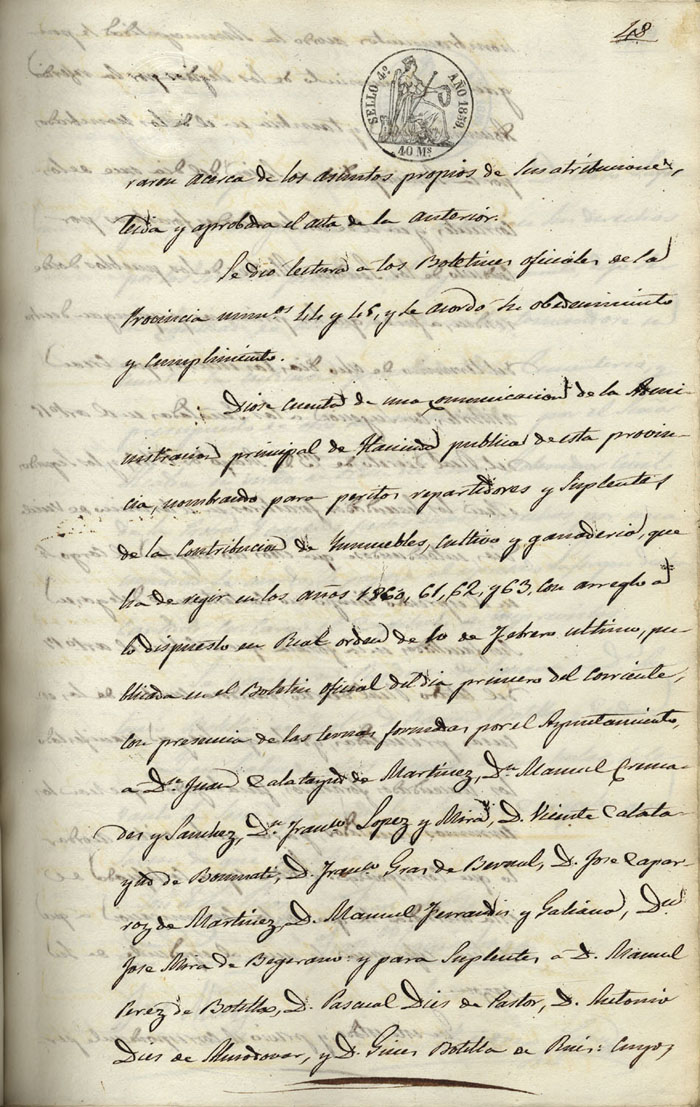 48
SELLO 4º AÑO 1859.
40 Ms
raron acerca de los asuntos propios de sus atribuciones,
leida y aprobada el acta de la anterior.
Se dio lectura a los Boletines oficiales de la
Provincia numos 44 y 45, y se acordó su obedecimiento
y cumplimiento.
Diose cuenta de una comunicacion de la Admi-
nistracion principal de Hacienda publica de esta provin-
cia, nombrando para peritos repartidores y suplentes
de la Contribucion de Inmuebles, cultivo y ganaderia, que
ha de regir en los años 1860, 61, 62, y 63, con arreglo a
lo dispuesto en Real orden de 10 de Febrero ultimo, pu-
blicada en el Boletin oficial del dia primero del corriente,
con presencia de las ternas formadas por el Ayuntamiento,
a Dn. Juan Calatayud de Martinez, Dn. Manuel Crema-
des y Sanchez, Dn. Franco. Lopez y Mira, D. Vicente Calata-
yud de Bonmati, D. Franco. Gras de Bernal, D. Jose Capar-
roz de Martinez, D. Manuel Ferrandis y Galiano, Dn.
Jose Mira de Begerano: y para suplentes a D. Manuel
Perez de Botilla, D. Pascual Dies de Pastor, D. Antonio
Dies de Almodovar, y D. Gines Botilla de Ruiz: Cuyos